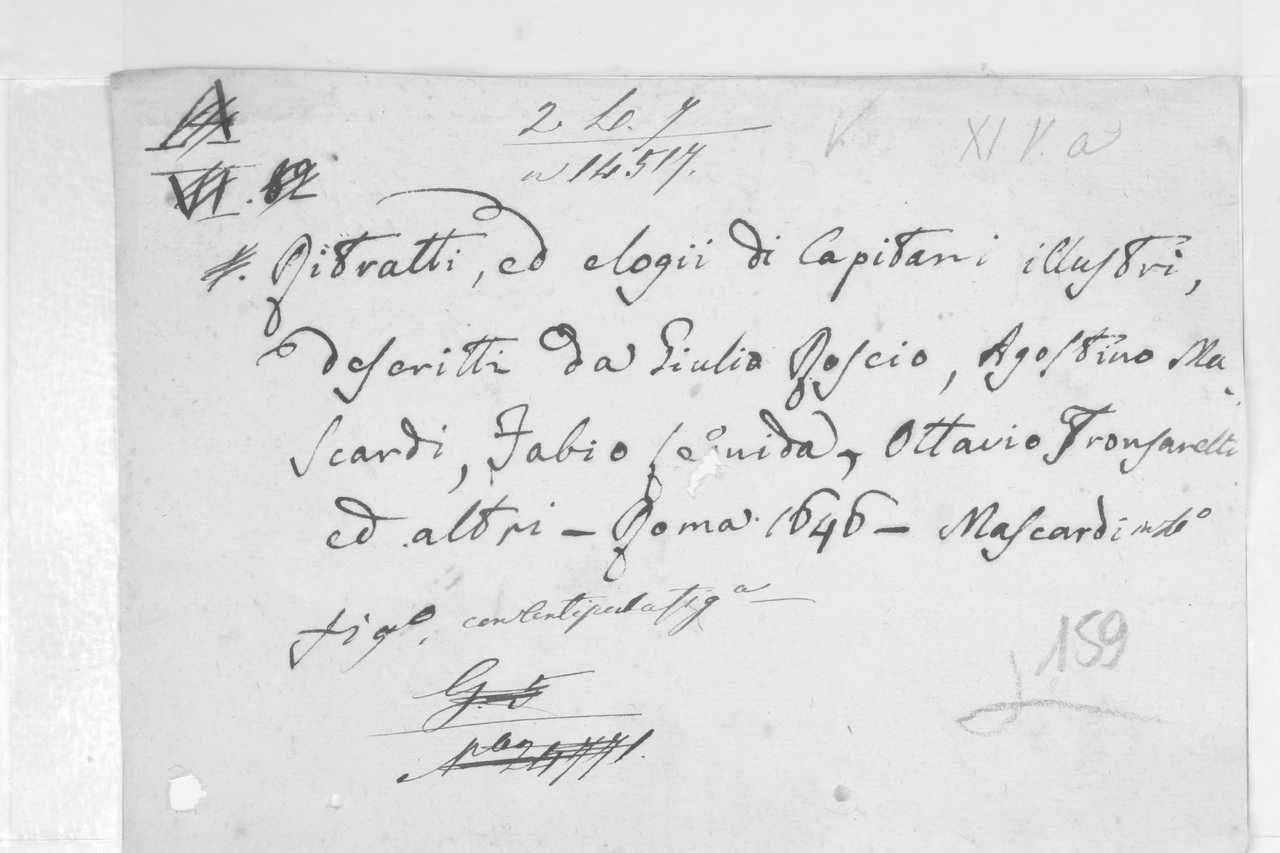 2 L. 7
n 14517.
V.
XIV. a
Ritratti, ed elogii di Capitani illustri,
descritti da Giulio Roscio, Agostino Ma-
scardi, Fabio Leonida, Ottavio Tronsarelli
ed altri - Roma 1646 - Mascardi in 4º
figº.
G. 5
159